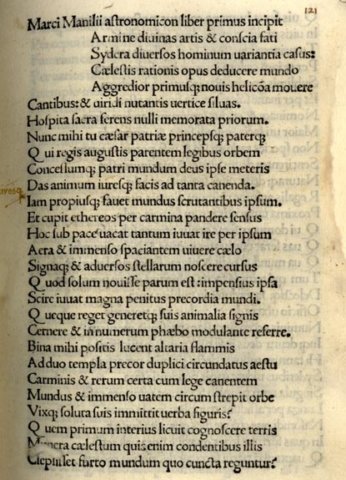 121
Marci Manilii astronomicon liber primus incipit
Armine diuinas artis & conscia fati
Sydera diuersos hominum uariantia casus:
Cælestis rationis opus deducere mundo
Aggredior primusq; nouis helicõa mouere
Cantibus: & uiridi nutantis uertice siluas.
Hospita sacra ferens nulli memorata priorum.
Nunc mihi tu cæsar patriæ princepsq; paterq;
Qui regis augustis parentem legibus orbem
Concessumq; patri mundum deus ipse meteris
Das animum iuresq; facis ad tanta canenda.
Iam propiusq; fauet mundus scrutantibus ipsum.
Et cupit ethereos per carmina pandere sensus
Hoc sub pace uacat tantum iuuat ire per ipsum
Aera & immenso spaciantem uiuere cælo
Signaq; & aduersos stellarum noscere cursus
Quod solum nouisse parum est rimpensius ipsa
Scire iuuat magna penitus precordia mundi.
Queque reget generetq; suis animalia signis
Cernere & in numerum phæbo modulante referre.
Bina mihi positis lucent altaria flammis
Ad duo templa precor duplici circundatus aestu
Carminis & rerum certa cum lege canentem
Mundus & immenso uatem circum strepit orbe
Vixq; soluta suis immittit uerba figuris:
Quem primum interius licuit cognoscere terris
Munera cælestum quis enim condentibus illis
Clepsisset furto mundum quo cuncta reguntur: